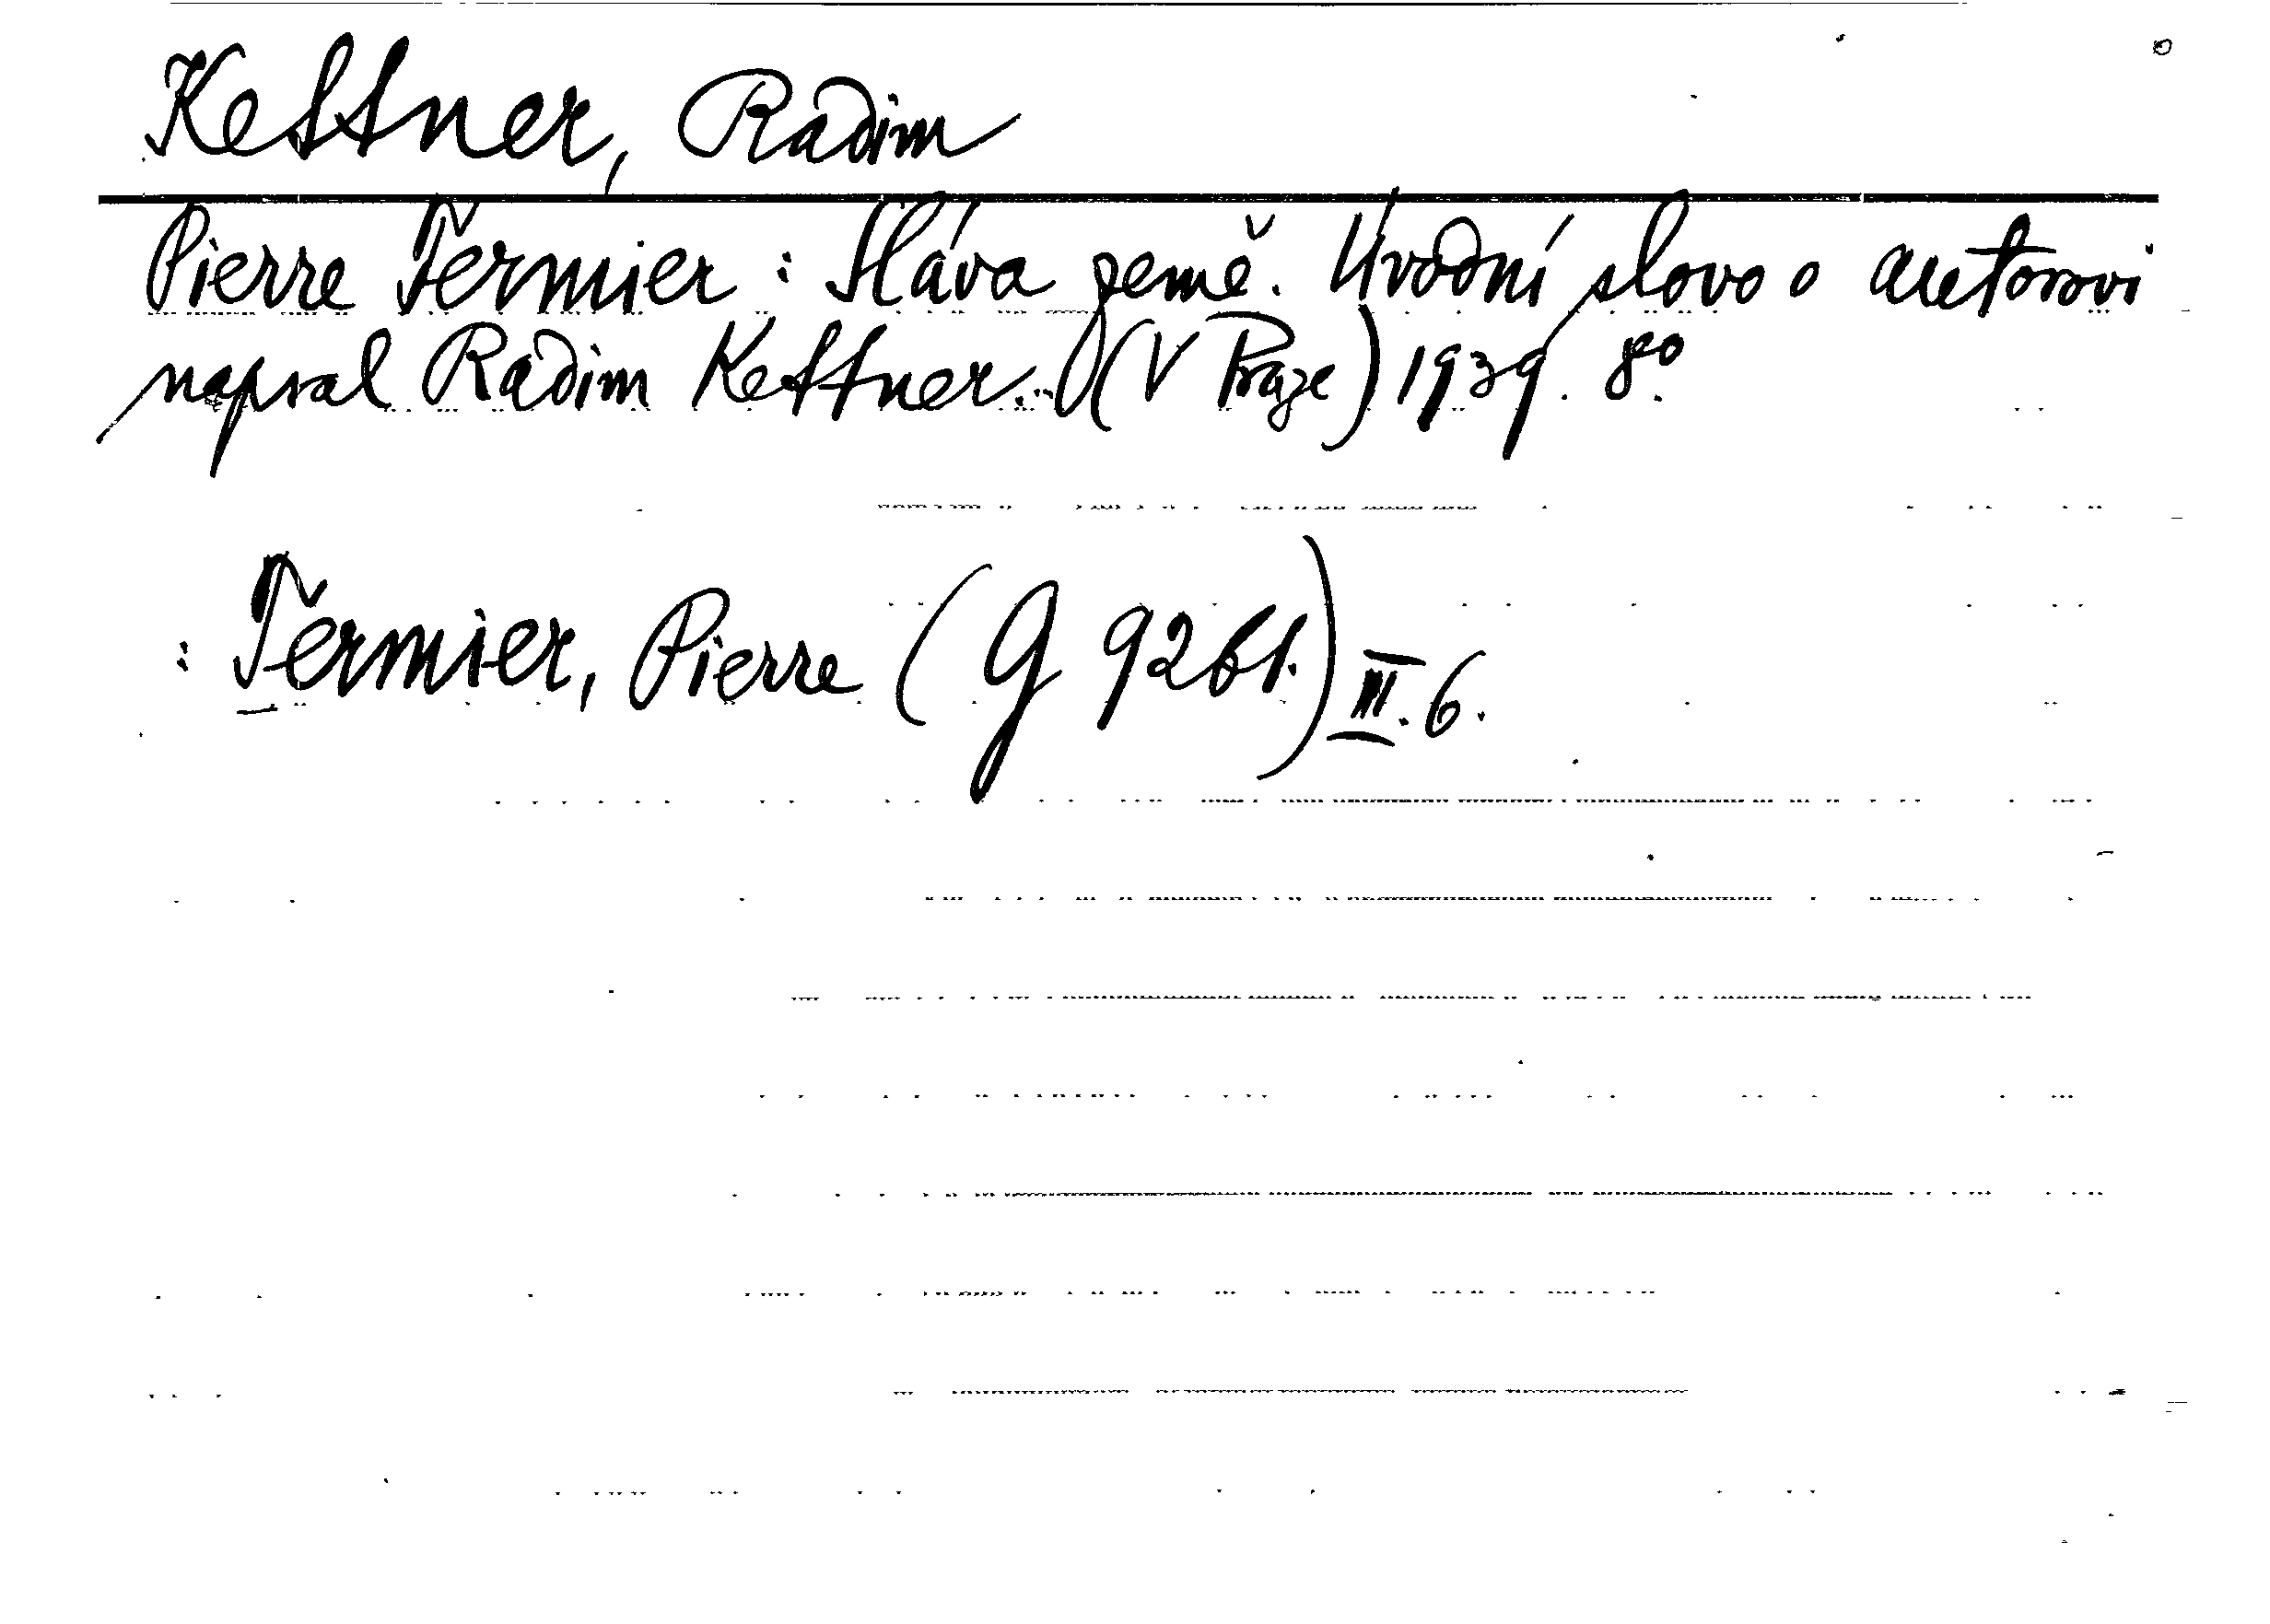 Kettner, Radim
Pierre Termier: Sláva země. Úvodní slovo o autorovi
napsal Radim Kettner... (V Praze) 1939. 8º.
: Termier, Pierre (G 9261.) III. 6.